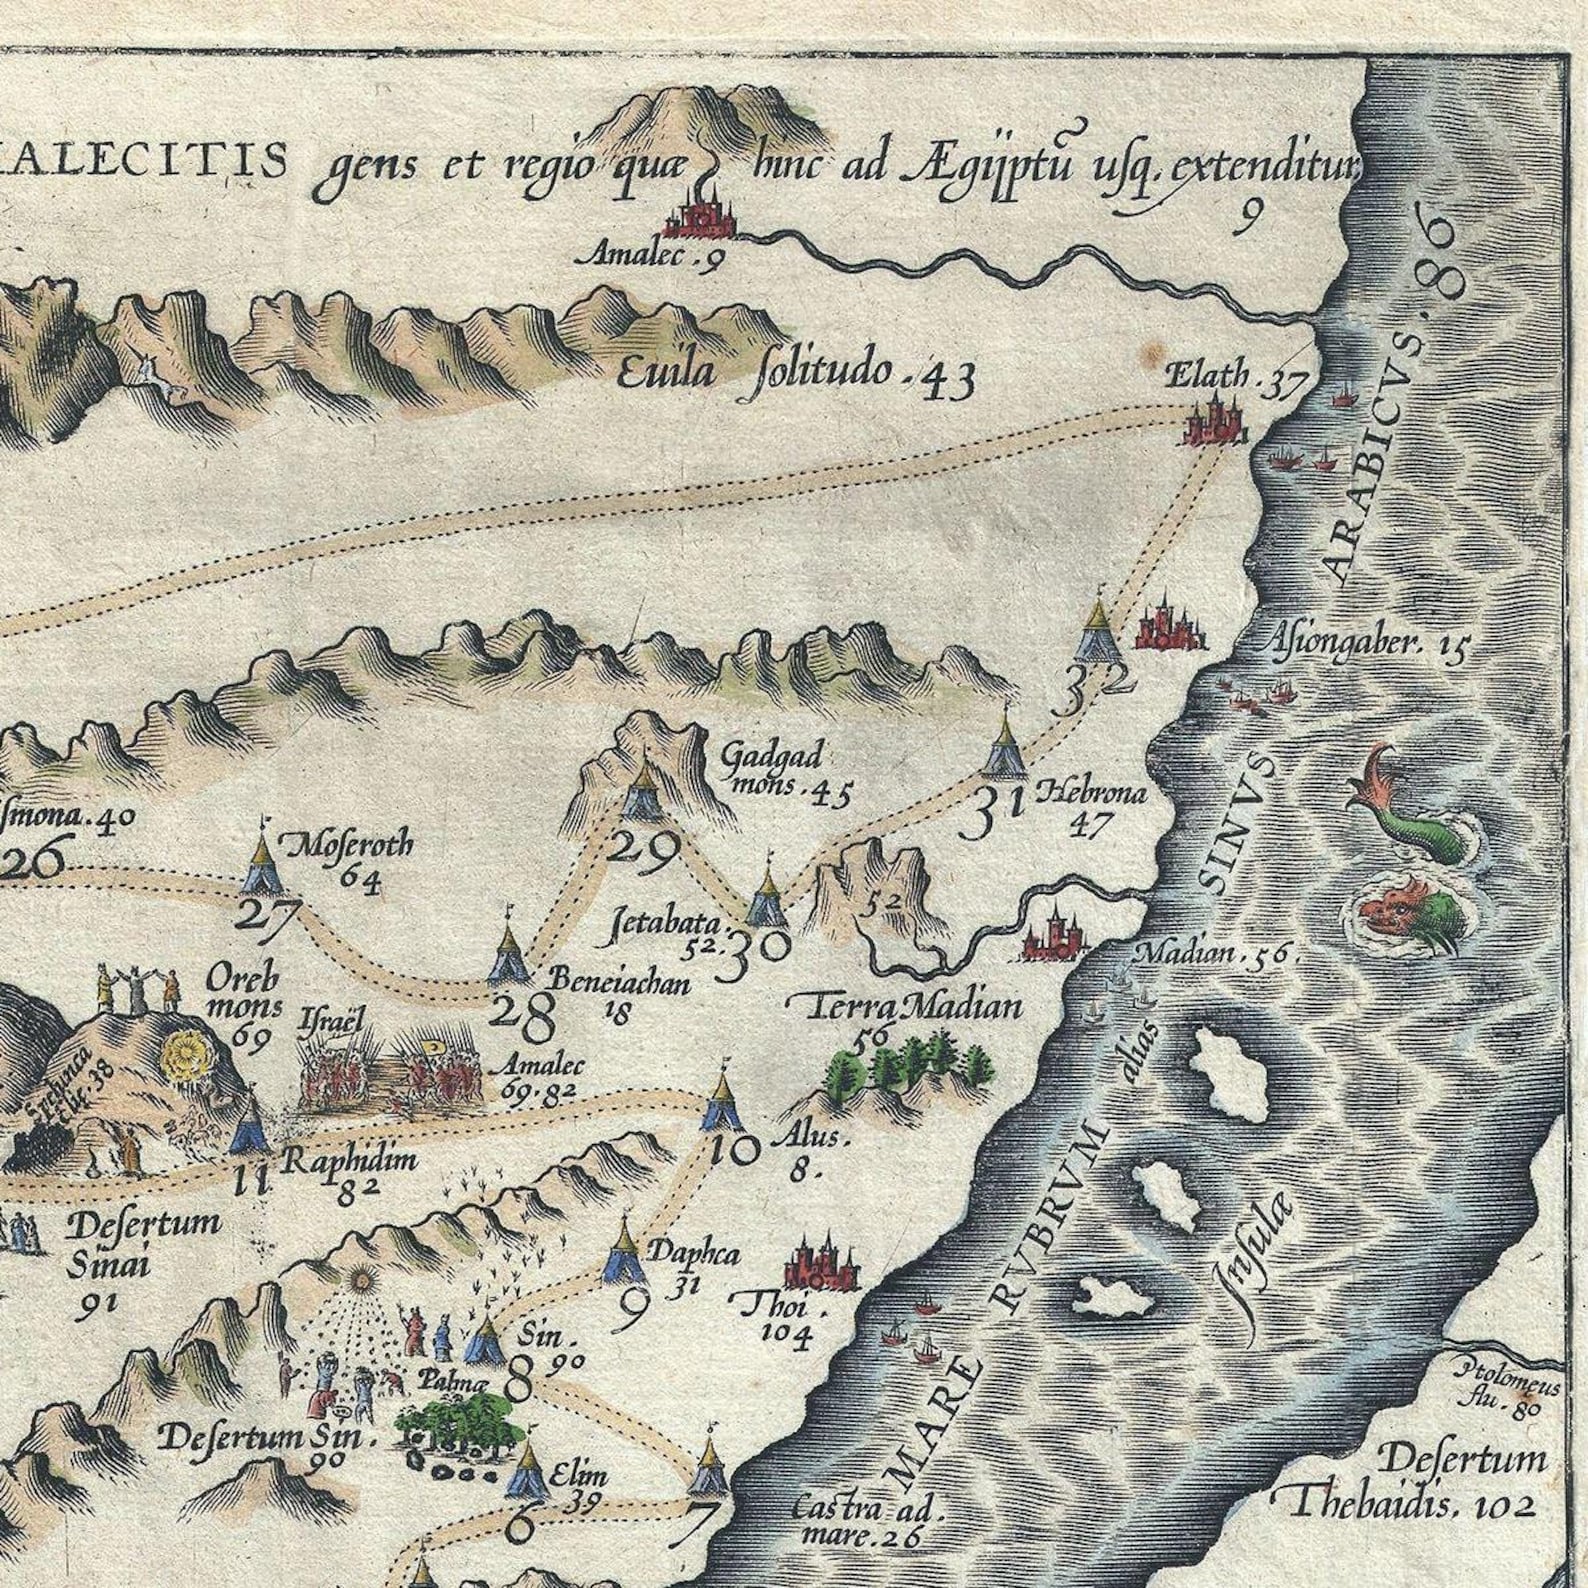 ALECITIS gens et regio quæ hinc ad Ægijptũ uſq. extenditur,
9
Amalec . 9
Euila ſolitudo . 43
Elath . 37
SINVS ARABICVS . 86
Aſiongaber. 15
32
Gadgad
mons . 45
31
Hebrona
47
ſmona . 40
26
Moſeroth
64
27
29
Jetabata .
52.
30
52
Madian . 56 .
Beneiachan
18
28
Oreb
mons
69
Iſraël
Terra Madian
56
Amalec
69. 82
38
alias
Raphidim
82
11
10
Alus .
8 .
MARE RVBRVM
Inſulæ
Deſertum
Sinai
91
Daphca
31
9
Thoi .
104
Sin .
90
8
Palmæ
Deſertum Sin .
90
Ptolomęus
flu . 80
Elim
39
6
7
Castra ad .
mare . 26
Deſertum
Thebaidis . 102